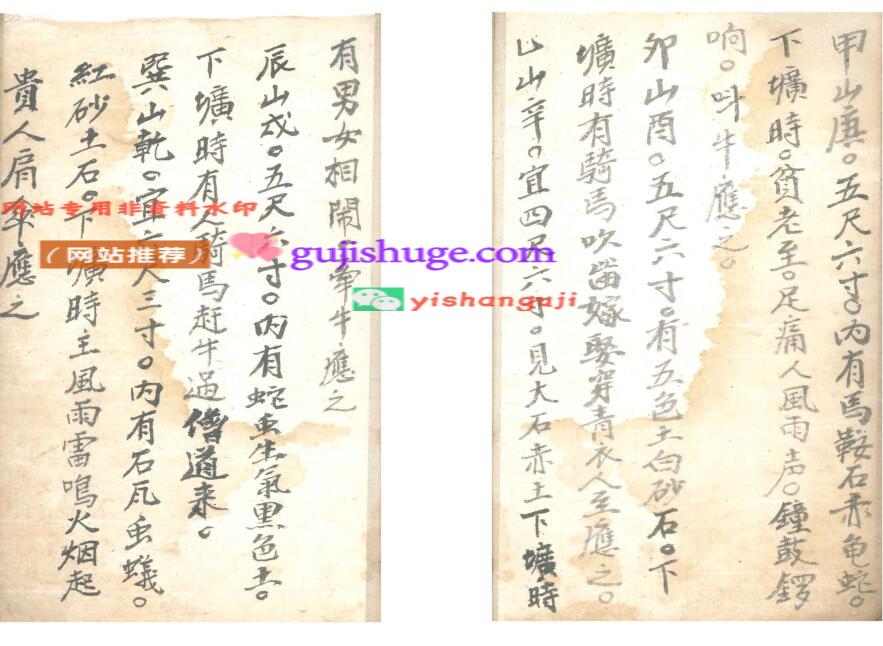 甲山庚。五尺六寸。内有馬鞍石赤龟蛇。
下壙時。貧老至。足痛人風雨声。鐘鼓鑼
响。呌牛應之。
卯山酉。五尺六寸。有五色土白砂石。下
壙時有騎馬吹笛嫁娶穿青衣人至應之。
山辛。宜四尺六寸。見大石赤土下壙時
有男女相鬧牽牛應之
辰山戍。五尺六寸。内有蛇虫生氣黑色土。
下壙時有人騎馬赶牛過僧道来。
巽山乾。宜六尺三寸。内有石瓦虫蟻。
紅砂土石。下壙時王風雨雷鳴火烟起
貴人肩傘應之
网站专用非资料水印
(网站推荐)
gujishuge.com
yishanguji